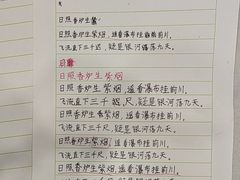 日照香炉生紫
日照香炉生紫烟，遥看瀑布挂前川，
飞流直下三千尺，疑是银河落九天。
日照
日照香炉生紫烟
日照香炉生紫烟，遥看瀑布挂前川，
飞流直下三千尺，疑是银河落九天，
日照香炉生紫烟，遥看瀑布挂前川，
飞流直下三千尺，疑是银河落九天，
日照香炉生紫烟，遥看瀑布挂前川，
飞流直下三千尺，疑是银河落九天。
日照香炉生紫烟，遥看瀑布挂前川，